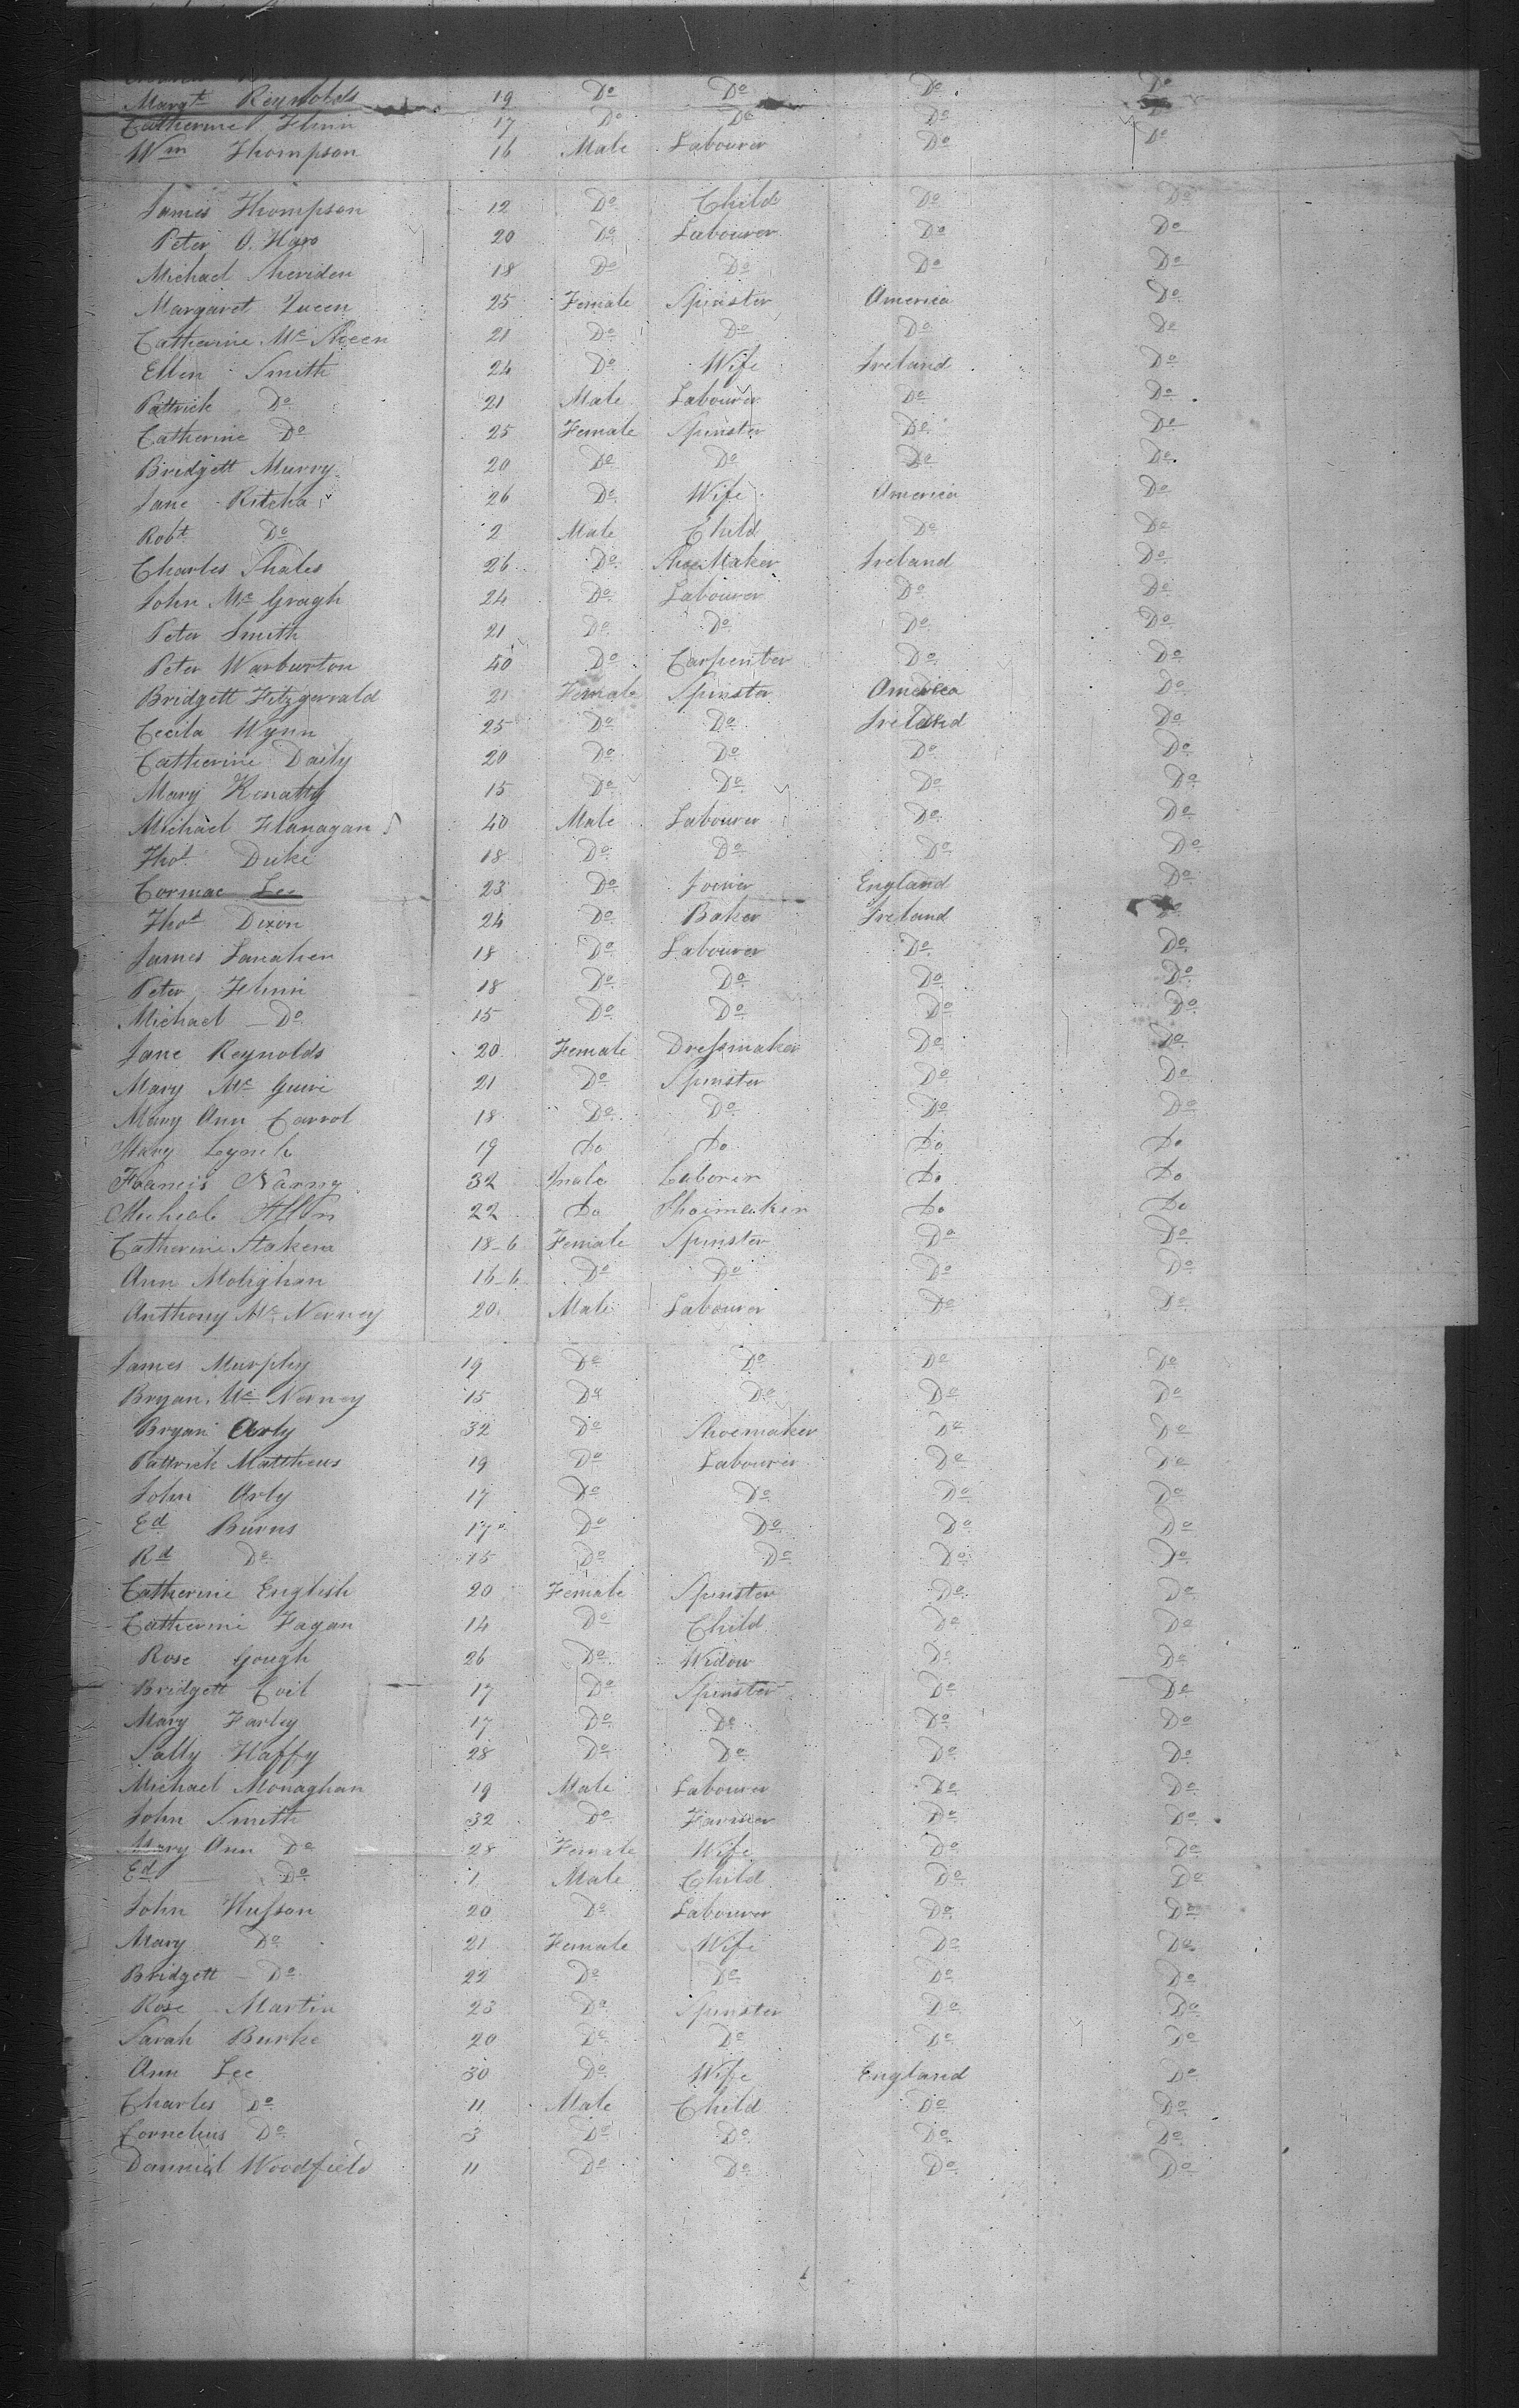 Margt Reynolds 19 Do Do Do Do
Catherine Flinn 17 Do Do Do Do
Wm Thompson 16 Male Labourer Do Do
James Thompson 12 Do Child Do Do
Peter O. Hare 20 Do Labourer Do Do
Michael Sheriden 18 Do Do Do Do
Margaret Queen 25 Female Spinster America Do
Catherine Mc 21 Do Do Do Do
Ellen Smith 24 Do Wife Ireland Do
Pattrick Do 21 Male Labourer Do Do
Catherine Do 25 Female Spinster Do Do
Bridgett Murry 20 Do Do Do Do
Jane Ritcha 26 Do Wife America Do
Robt Do 2 Male Child Do Do
Charles Shales 26 Do ShoeMaker Ireland Do
John Mc Gragh 24 Do Labourer Do Do
Peter Smith 21 Do Do Do Do
Peter Warburton 40 Do Carpenter Do Do
Bridgett Fitzgerrald 21 Female Spinster America Do
Cecila Wynn 25 Do Do Ireland Do
Catherine Daily 20 Do Do Do Do
Mary 15 Do Do Do Do
Michael Flanagan 40 Male Labourer Do Do
Thos Duke 18 Do Do Do Do
Cormac Lee 23 Do Joiner England Do
Thos Dixon 24 Do Baker Ireland Do
James Lanahen 18 Do Labourer Do Do
Peter Flinn 18 Do Do Do Do
Michael Do 15 Do Do Do Do
Jane Reynolds 20 Female Dressmaker Do Do
Mary Mc Guire 21 Do Spinster Do Do
Mary Ann Carrol 18 Do Do Do Do
Mary Lynch 19 Do Do Do Do
Francis Narny 32 Male Laborer Do Do
Micheal 22 Do Shoimaker Do Do
Catherine Stakem 18-6 Female Spinster Do Do
Ann Molighan 16-6 Do Do Do Do
Anthony Mc Nerney 20 Male Labourer Do Do
James Murphy 19 Do Do Do Do
Bryan Mc Nerney 15 Do Do Do Do
Bryan Arly 32 Do Shoemaker Do Do
Pattrick Matthews 19 Do Labourer Do Do
John Arly 17 Do Do Do Do
Ed Burns 17 Do Do Do Do
Rd Do 15 Do Do Do Do
Catherine English 20 Female Spinster Do Do
Catherine Fagan 14 Do Child Do Do
Rose Gough 26 Do Widow Do Do
Bridgett Coil 17 Do Spinster Do Do
Mary Farley 17 Do Do Do Do
Sally Haffy 28 Do Do Do Do
Michael Monaghan 19 Male Labourer Do Do
John Smith 32 Do Farmer Do Do
Mary Ann Do 28 Female Wife Do Do
Ed Do 1 Male Child Do Do
John Husson 20 Do Labourer Do Do
Mary Do 21 Female Wife Do Do
Bridgett Do 22 Do Do Do Do
Rose Martin 23 Do Spinster Do Do
Sarah Burke 20 Do Do Do Do
Ann Lee 30 Do Wife England Do
Charles Do 11 Male Child Do Do
Cornelius Do 3 Do Do Do Do
Danniel Woodfield 11 Do Do Do Do